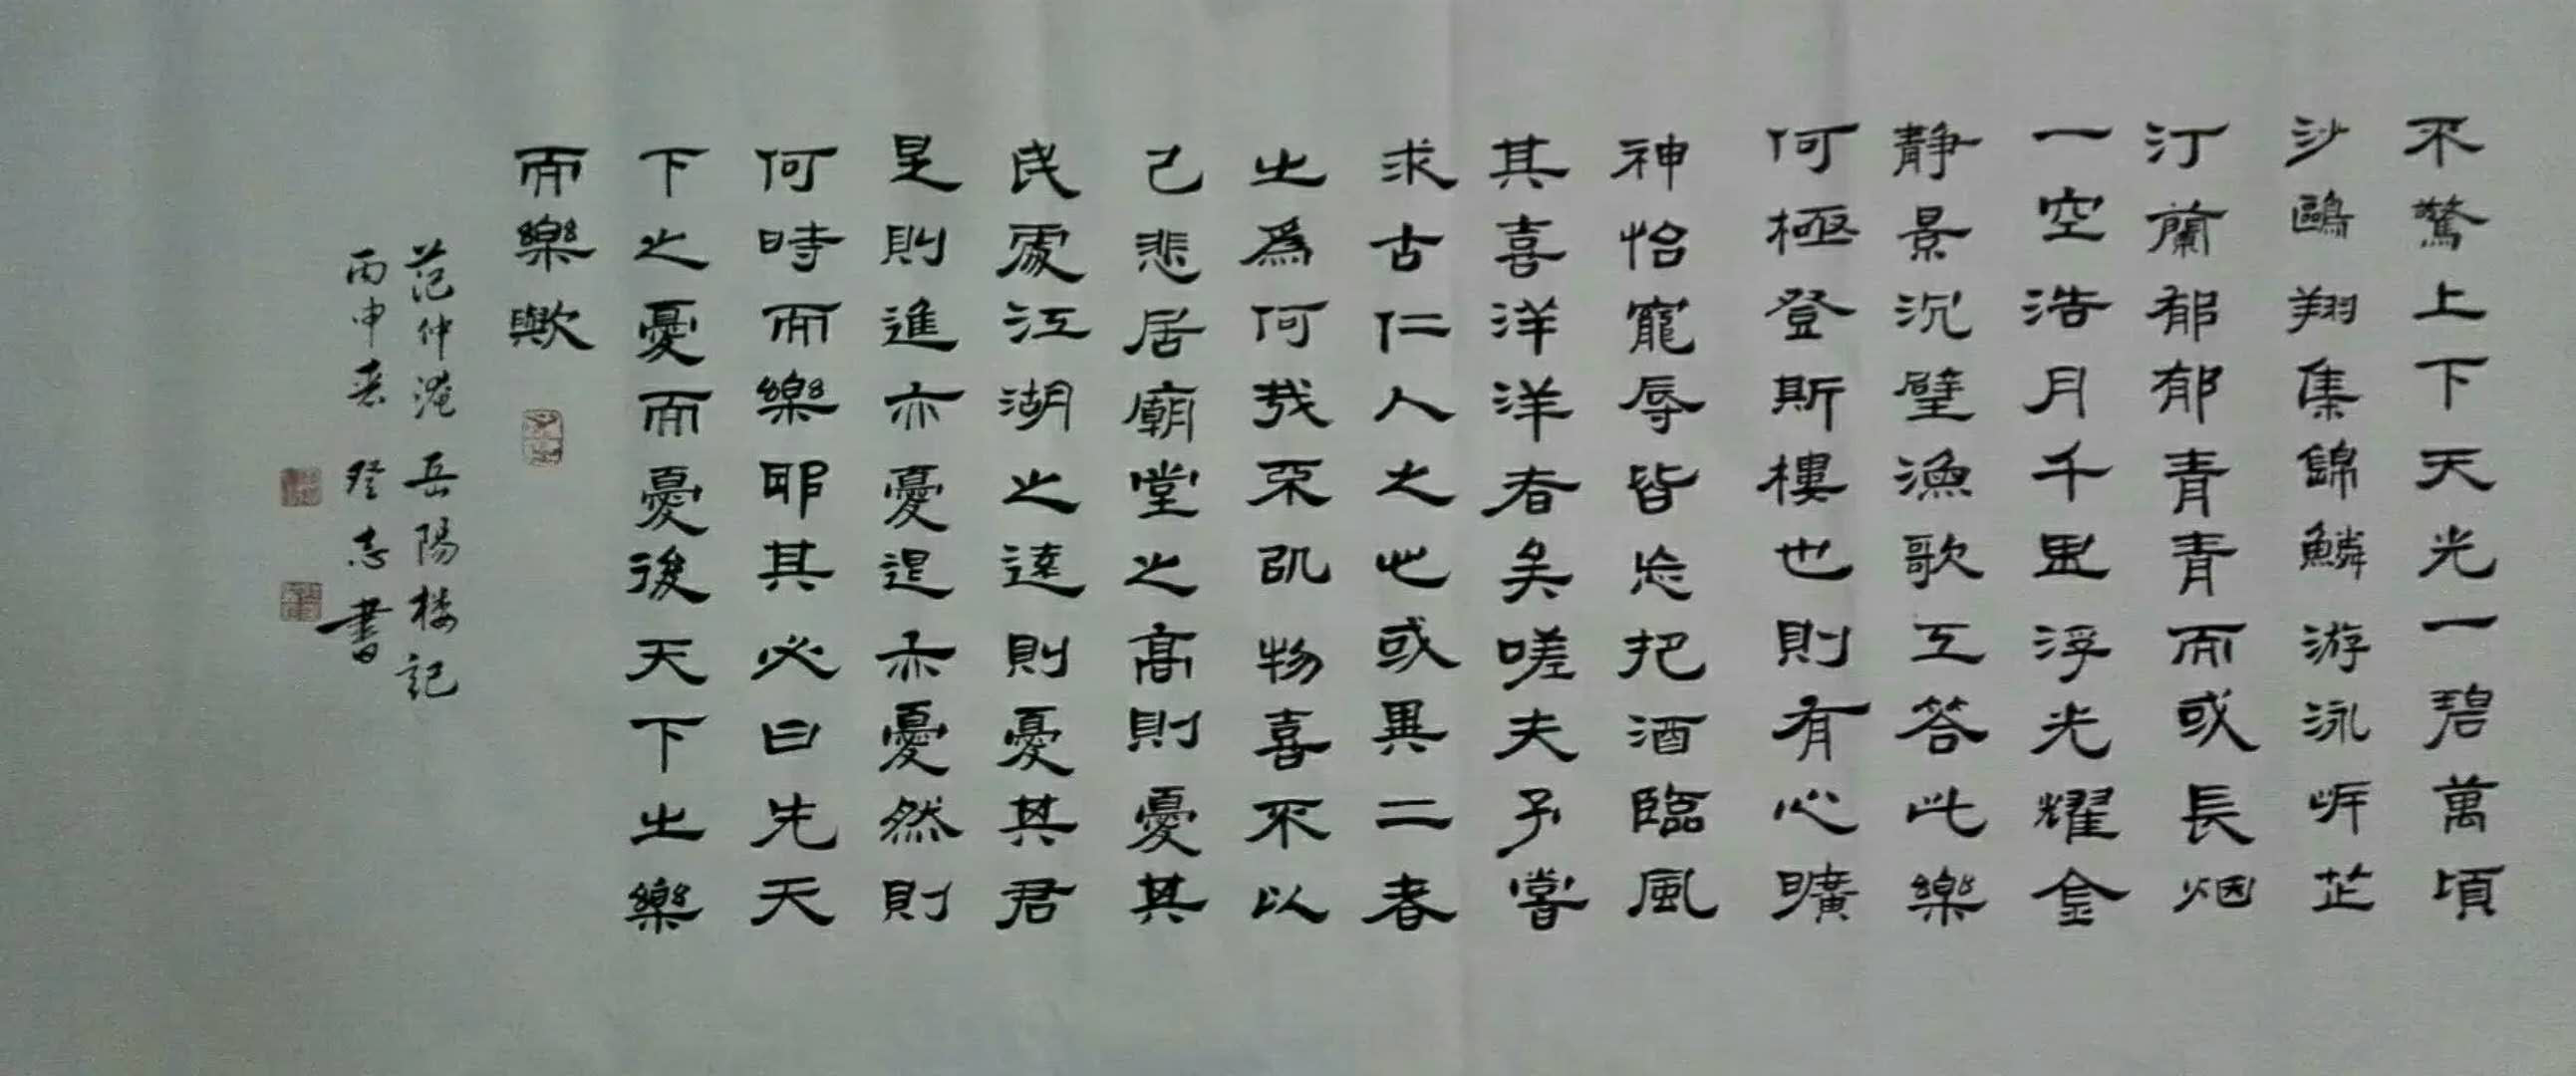 不驚上下天光一碧萬頃
沙鷗翔集錦鱗游泳岸芷
汀蘭郁郁青青而或長烟
一空浩月千里浮光耀金
靜景沉璧漁歌互答此樂
何極登斯樓也則有心曠
神怡寵辱皆忘把酒臨風
其喜洋洋者矣嗟夫予嘗
求古仁人之心或異二者
之爲何哉不以物喜不以
己悲居廟堂之高則憂其
民處江湖之遠則憂其君
是則進亦憂退亦憂然則
何時而樂耶其必曰先天
下之憂而憂後天下之樂
而樂歟
范仲淹岳陽楼記
丙申春登志書